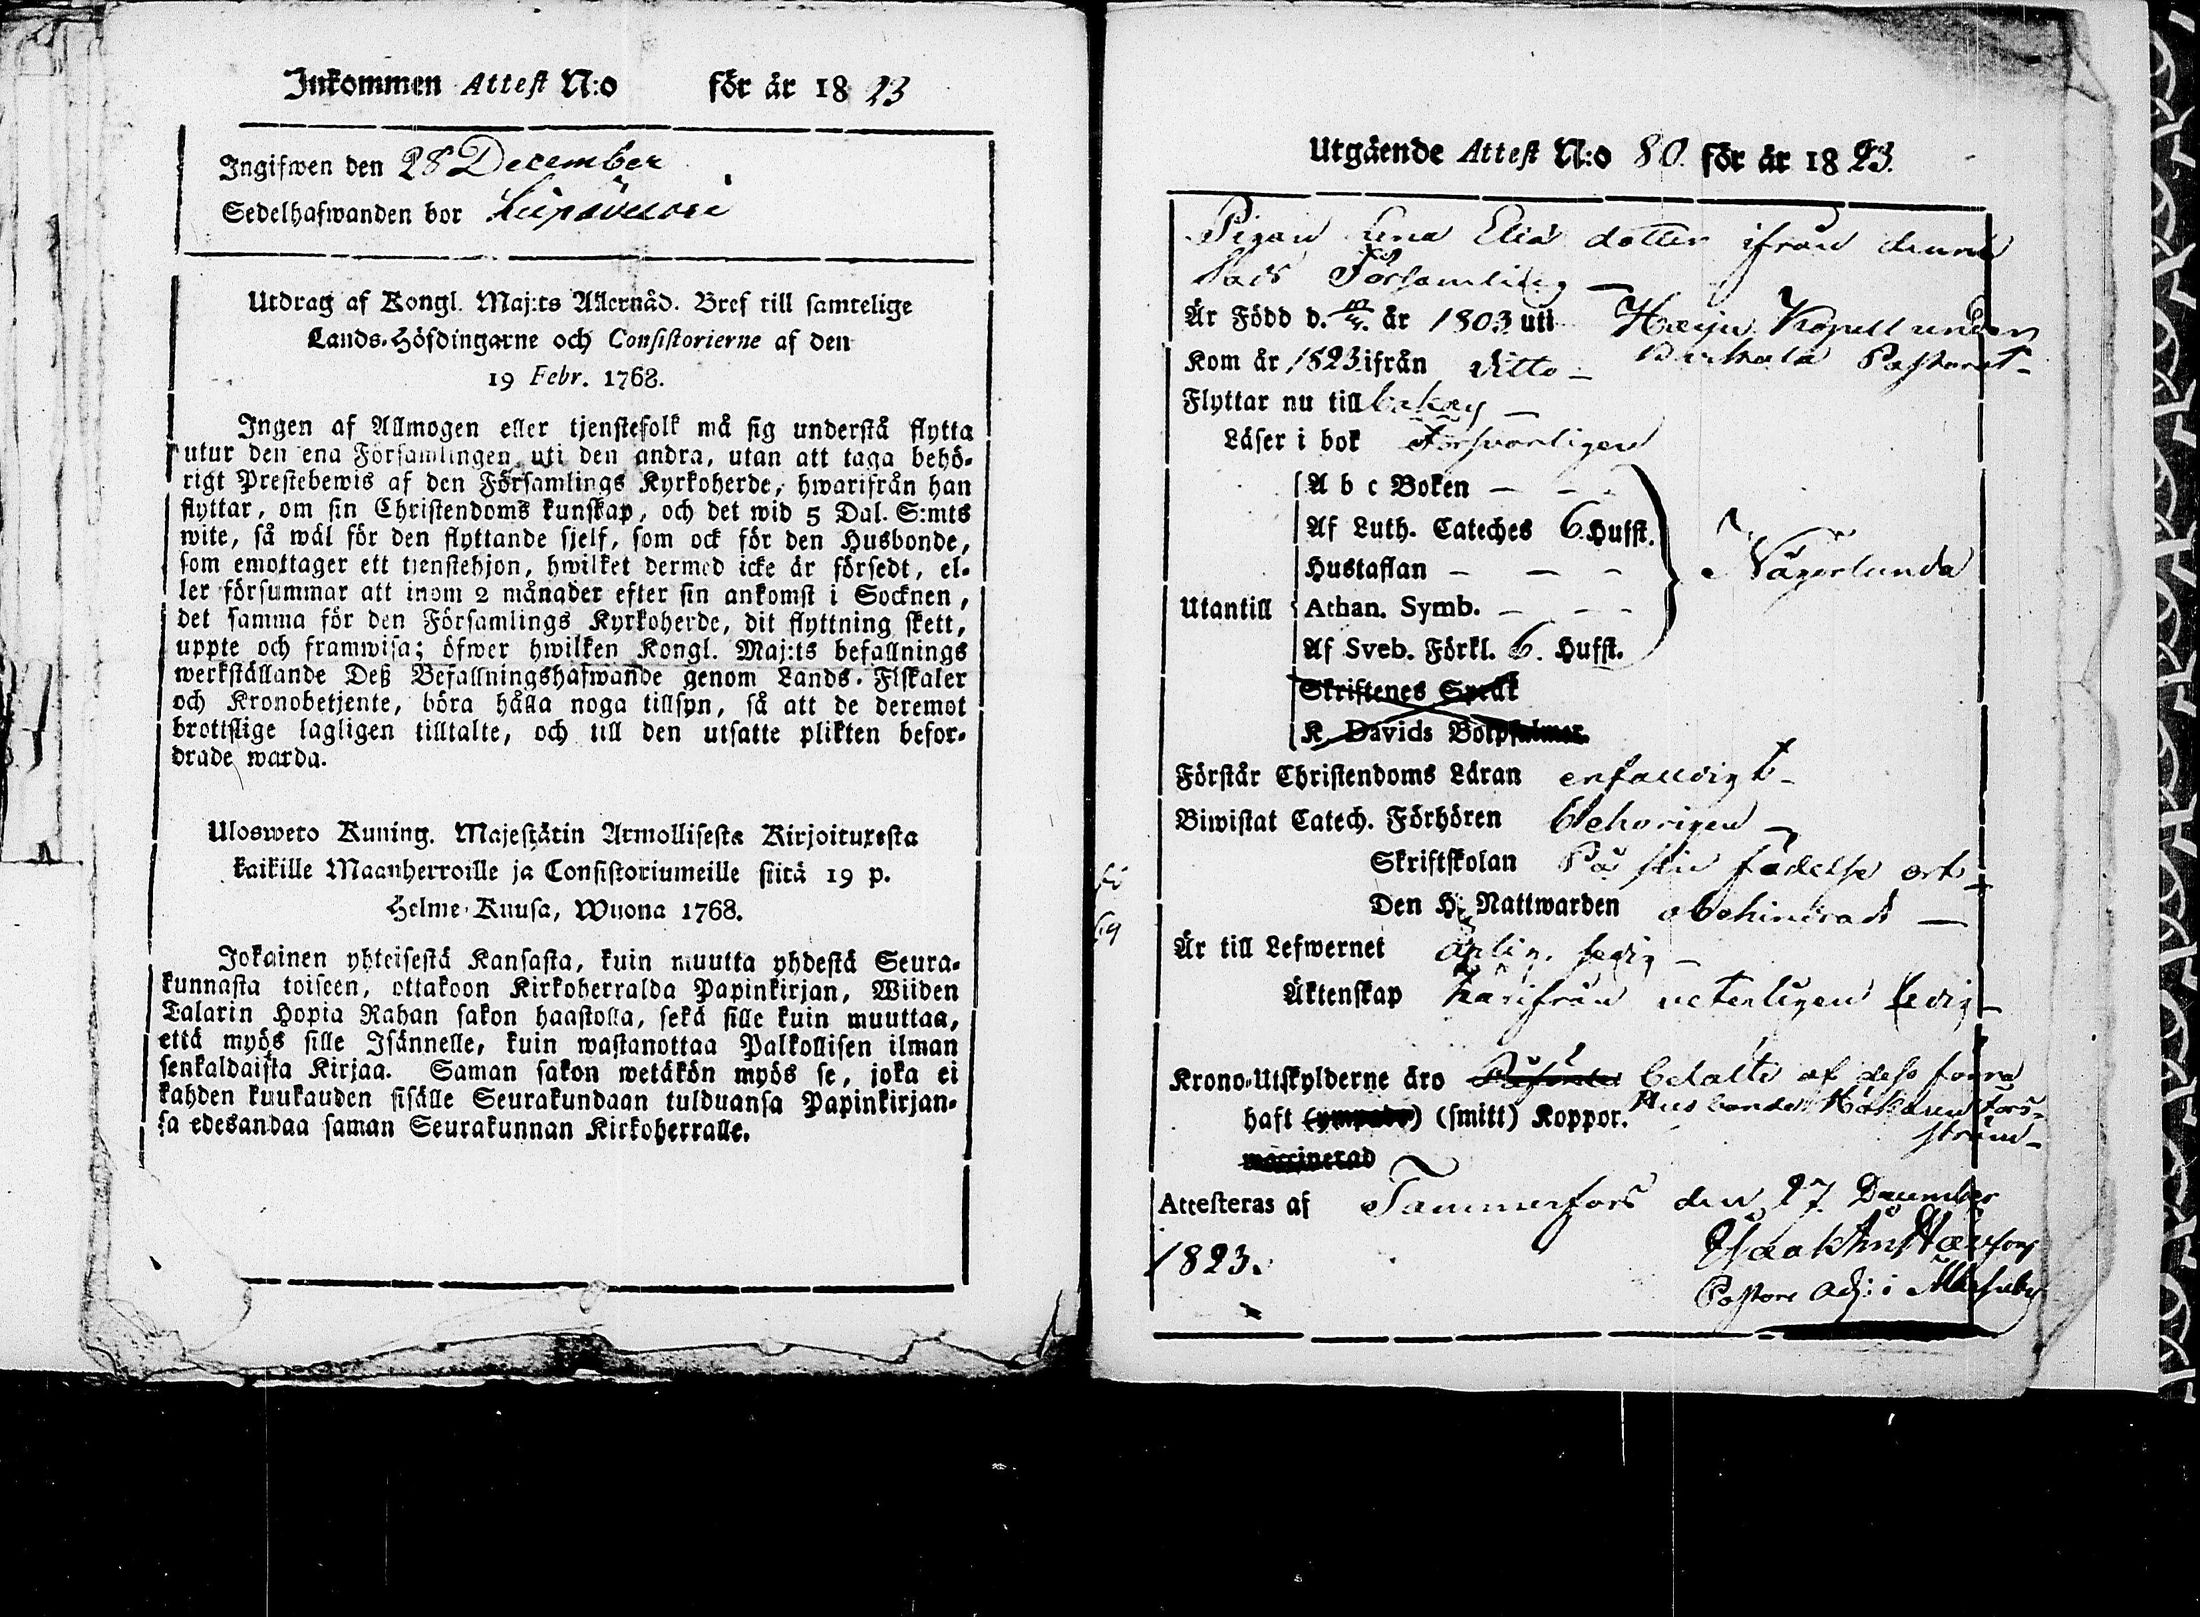 Inkommen Attest N:o för år 1823
Ingifwen den 28 December
Sedelhafwanden bor
Utdrag af Kongl. Maj:ts Allernåd. Bref till samtelige
Lands-Höfdingarne och Consistorierne af den
19 Febr. 1768.
Ingen af Allmogen eller tjenstefolk må sig understå flytta
utur den ena Församlingen uti den andra, utan att taga behö-
rigt Prestebewis af den Församlings Kyrkoherde, hwarifrån han
flyttar, om sin Christendoms kunskap, och det wid 5 Dal. S:mts
wite, så wäl för den flyttande sjelf, som ock för den Husbonde,
som emottager ett tjenstehjon, hwilket dermed icke är försedt, el-
ler försummar att inom 2 månader efter sin ankomst i Socknen,
det samma för den Församlings Kyrkoherde, dit flyttning skett,
uppte och framwisa; öfwer hwilken Kongl. Maj:ts befallnings
werkställande Deß Befallningshafwande genom Lands-Fiskaler
och Kronobetjente, böra hålla noga tillsyn, så att de deremot
brottslige lagligen tilltalte, och till den utsatte plikten befor-
drade warda.
Ulosweto Kuning. Majestätin Armollisesta Kirjoituxesta
kaikille Maanherroille ja Consistoriumeille siitä 19 p.
Helme-Kuusa, Wuona 1768.
Jokainen yhteisestä Kansasta, kuin muutta yhdestä Seura-
kunnasta toiseen, ottakoon Kirkoherralda Papinkirjan, Wiiden
Talarin Hopia Rahan sakon haastolla, sekä sille kuin muuttaa,
että myös sille Isännelle, kuin wastanottaa Palkollisen ilman
senkaldaista Kirjaa. Saman sakon wetäkön myös se, joka ei
kahden kuukauden sisälle Seurakundaan tulduansa Papinkirjan-
sa edesandaa saman Seurakunnan Kirkoherralle.
Utgående Attest N:o 80. för år 1823.
Pigan Lena Elia dotter ifrån denna
Stads Församling —
Är Född d. 10/4. år 1803 uti Harju Kapell under
Kom år 1823 ifrån ditto — Birkala Pastorat —
Flyttar nu till
Läser i bok Försvarligen
A b c Boken — — —
Af Luth. Cateches 6. Hufst.
Hustaflan — — —
Utantill Athan. Symb. — — — Någorlunda
Af Sveb. Förkl. 6. Hufst.
Skriftenes Språk
K. Davids Botpsalmer.
Förstår Christendoms Läran enfaldigt —
Biwistat Catech. Förhören behörigen —
Skriftskolan På sin födelse ort —
Den H. Nattwarden obehindrad —
Är till Lefwernet ärlig. —
Äktenskap härifrån veterligen ledig —
Krono-Utskylderne äro betalte af dess förra
haft (smitt) Koppor. Husbonde Håkan Fors-
vaccinerad ström —
Attesteras af Tammerfors den 27 December
1823.
Pastors Adj: i